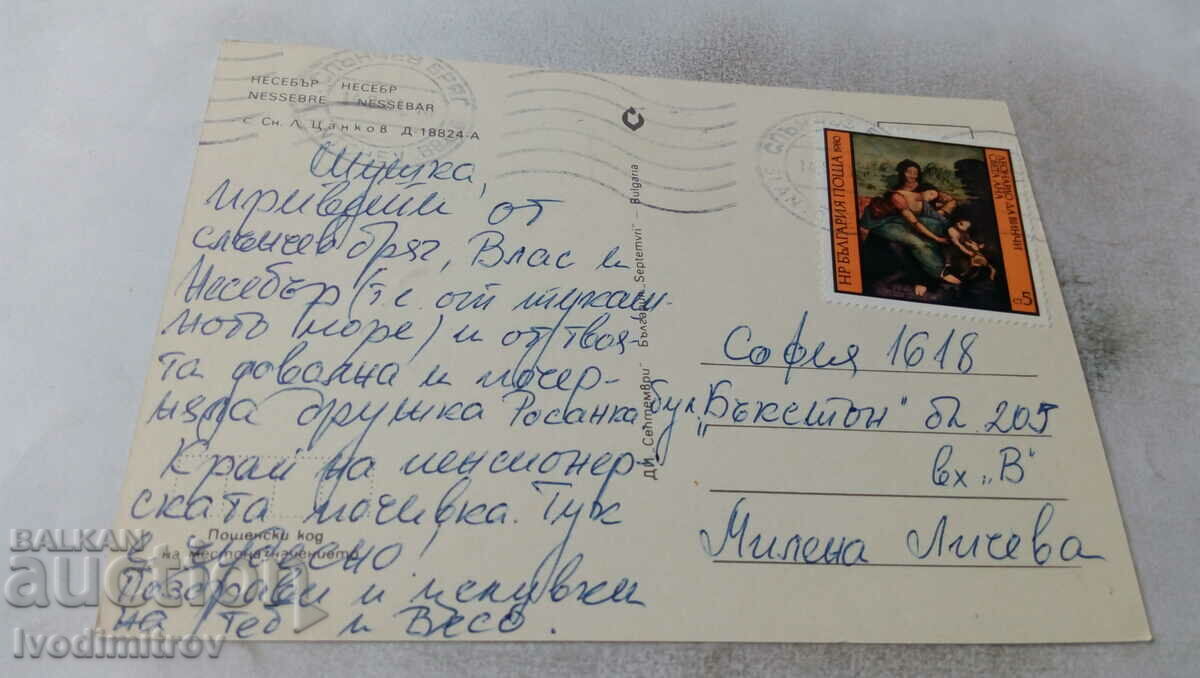 НЕСЕБЪР НЕСЕБР
NESSEBRE NESSEBAR
с Сн. Л. Цанков Д-18824-А
Шушка,
привети от
слънчев бряг, Влас и
Несебър (т.е. от тукаш-
ното море) и от твоя-
та
и почер-
няла дружка Росанка
Край на пенсионер-
ската почивка. Тук
е чудесно!
Поздрави и целувки
на теб и Весо.
Пощенски код
на местоназначението
ДИ „Септември" България „Septemvri" — Bulgaria
СЛЪНЧЕВ БРЯГ
НР БЪЛГАРИЯ ПОЩА 1980
ЛЕОНАРДО ДА ВИНЧИ
СВЕТА АНА
5
София 1618
бул. „Бъкстон" бл 205
вх „В"
Милена Личева
BALKAN
auction
Ivodimitrov